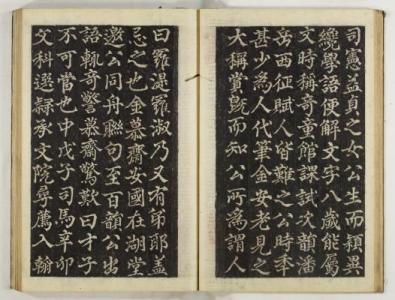 司憲益貞之女公生而穎異
纔學語便解文字八歲能屬
文時稱奇童館課試次韻潘
岳西征賦人皆難之公時季
甚少為人代筆金安老見之
大稱賞旣而知公所為謂人
曰羅湜羅淑乃又有弟耶蓋
忌之也金慕齋安國在湖堂
邀公同舟聯句至百韻公出
語輒奇警慕齋驚歎曰才子
不可當也中戊子司馬辛卯
文科選隷承文院尋薦入翰